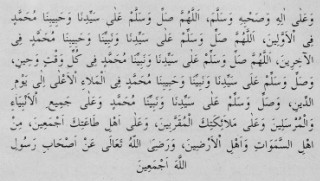 وَعَلَى اٰلِهِ وَصَحْبِهِ وَسَلَّمَ، اَللّٰهُمَّ صَلِّ وَسَلِّمْ عَلَى سَيِّدِنَا وَحَبِيبِنَا مُحَمَّدٍ
فِى الْاَوَّلِينَ، اَللّٰهُمَّ صَلِّ وَسَلِّمْ عَلَى سَيِّدِنَا وَنَبِيِّنَا وَحَبِيبِنَا مُحَمَّدٍ فِى
الْآخِرِينَ، اَللّٰهُمَّ صَلِّ وَسَلِّمْ عَلَى سَيِّدِنَا وَنَبِيِّنَا مُحَمَّدٍ فِى كُلِّ وَقْتٍ وَحِينٍ،
وَصَلِّ وَسَلِّمْ عَلَى سَيِّدِنَا وَنَبِيِّنَا وَحَبِيبِنَا مُحَمَّدٍ فِى الْمَلَاءِ الْاَعْلَى اِلَى يَوْمِ
الدِّينِ، وَصَلِّ وَسَلِّمْ عَلَى سَيِّدِنَا وَنَبِيِّنَا مُحَمَّدٍ وَعَلَى جَمِيعِ الْاَنْبِيَاءِ
وَالْمُرْسَلِينَ وَعَلَى مَلَائِكَتِكَ الْمُقَرَّبِينَ، وَعَلَى اَهْلِ طَاعَتِكَ اَجْمَعِينَ، مِنْ
اَهْلِ السَّمٰوَاتِ وَاَهْلِ الْاَرْضِينَ، وَرَضِىَ اللّٰهُ تَعَالَى عَنْ اَصْحَابِ رَسُولِ
اللّٰهِ اَجْمَعِينَ